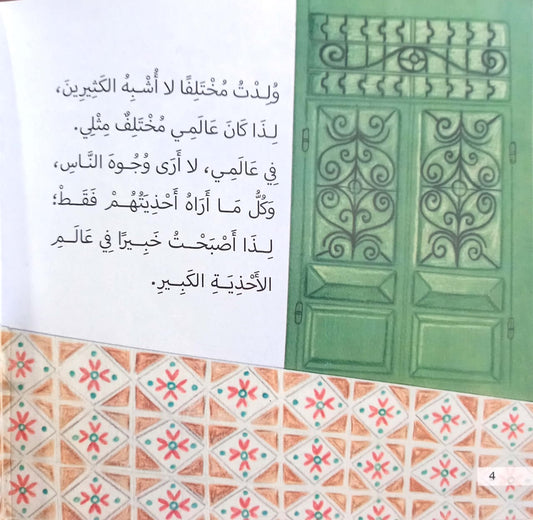 وُلِدْتُ مُخْتَلِفًا لا أُشْبِهُ الكَثِيرِينَ،
لِذَا كَانَ عَالَمِي مُخْتَلِفٌ مِثْلِي.
فِي عَالَمِي، لا أَرَى وُجُوهَ النَّاسِ،
وَكُلُّ مَا أَرَاهُ أَحْذِيَتُهُمْ فَقَطْ؛
لِذَا أَصْبَحْتُ خَبِيرًا فِي عَالَمِ
الأَحْذِيَةِ الكَبِيرِ.
4